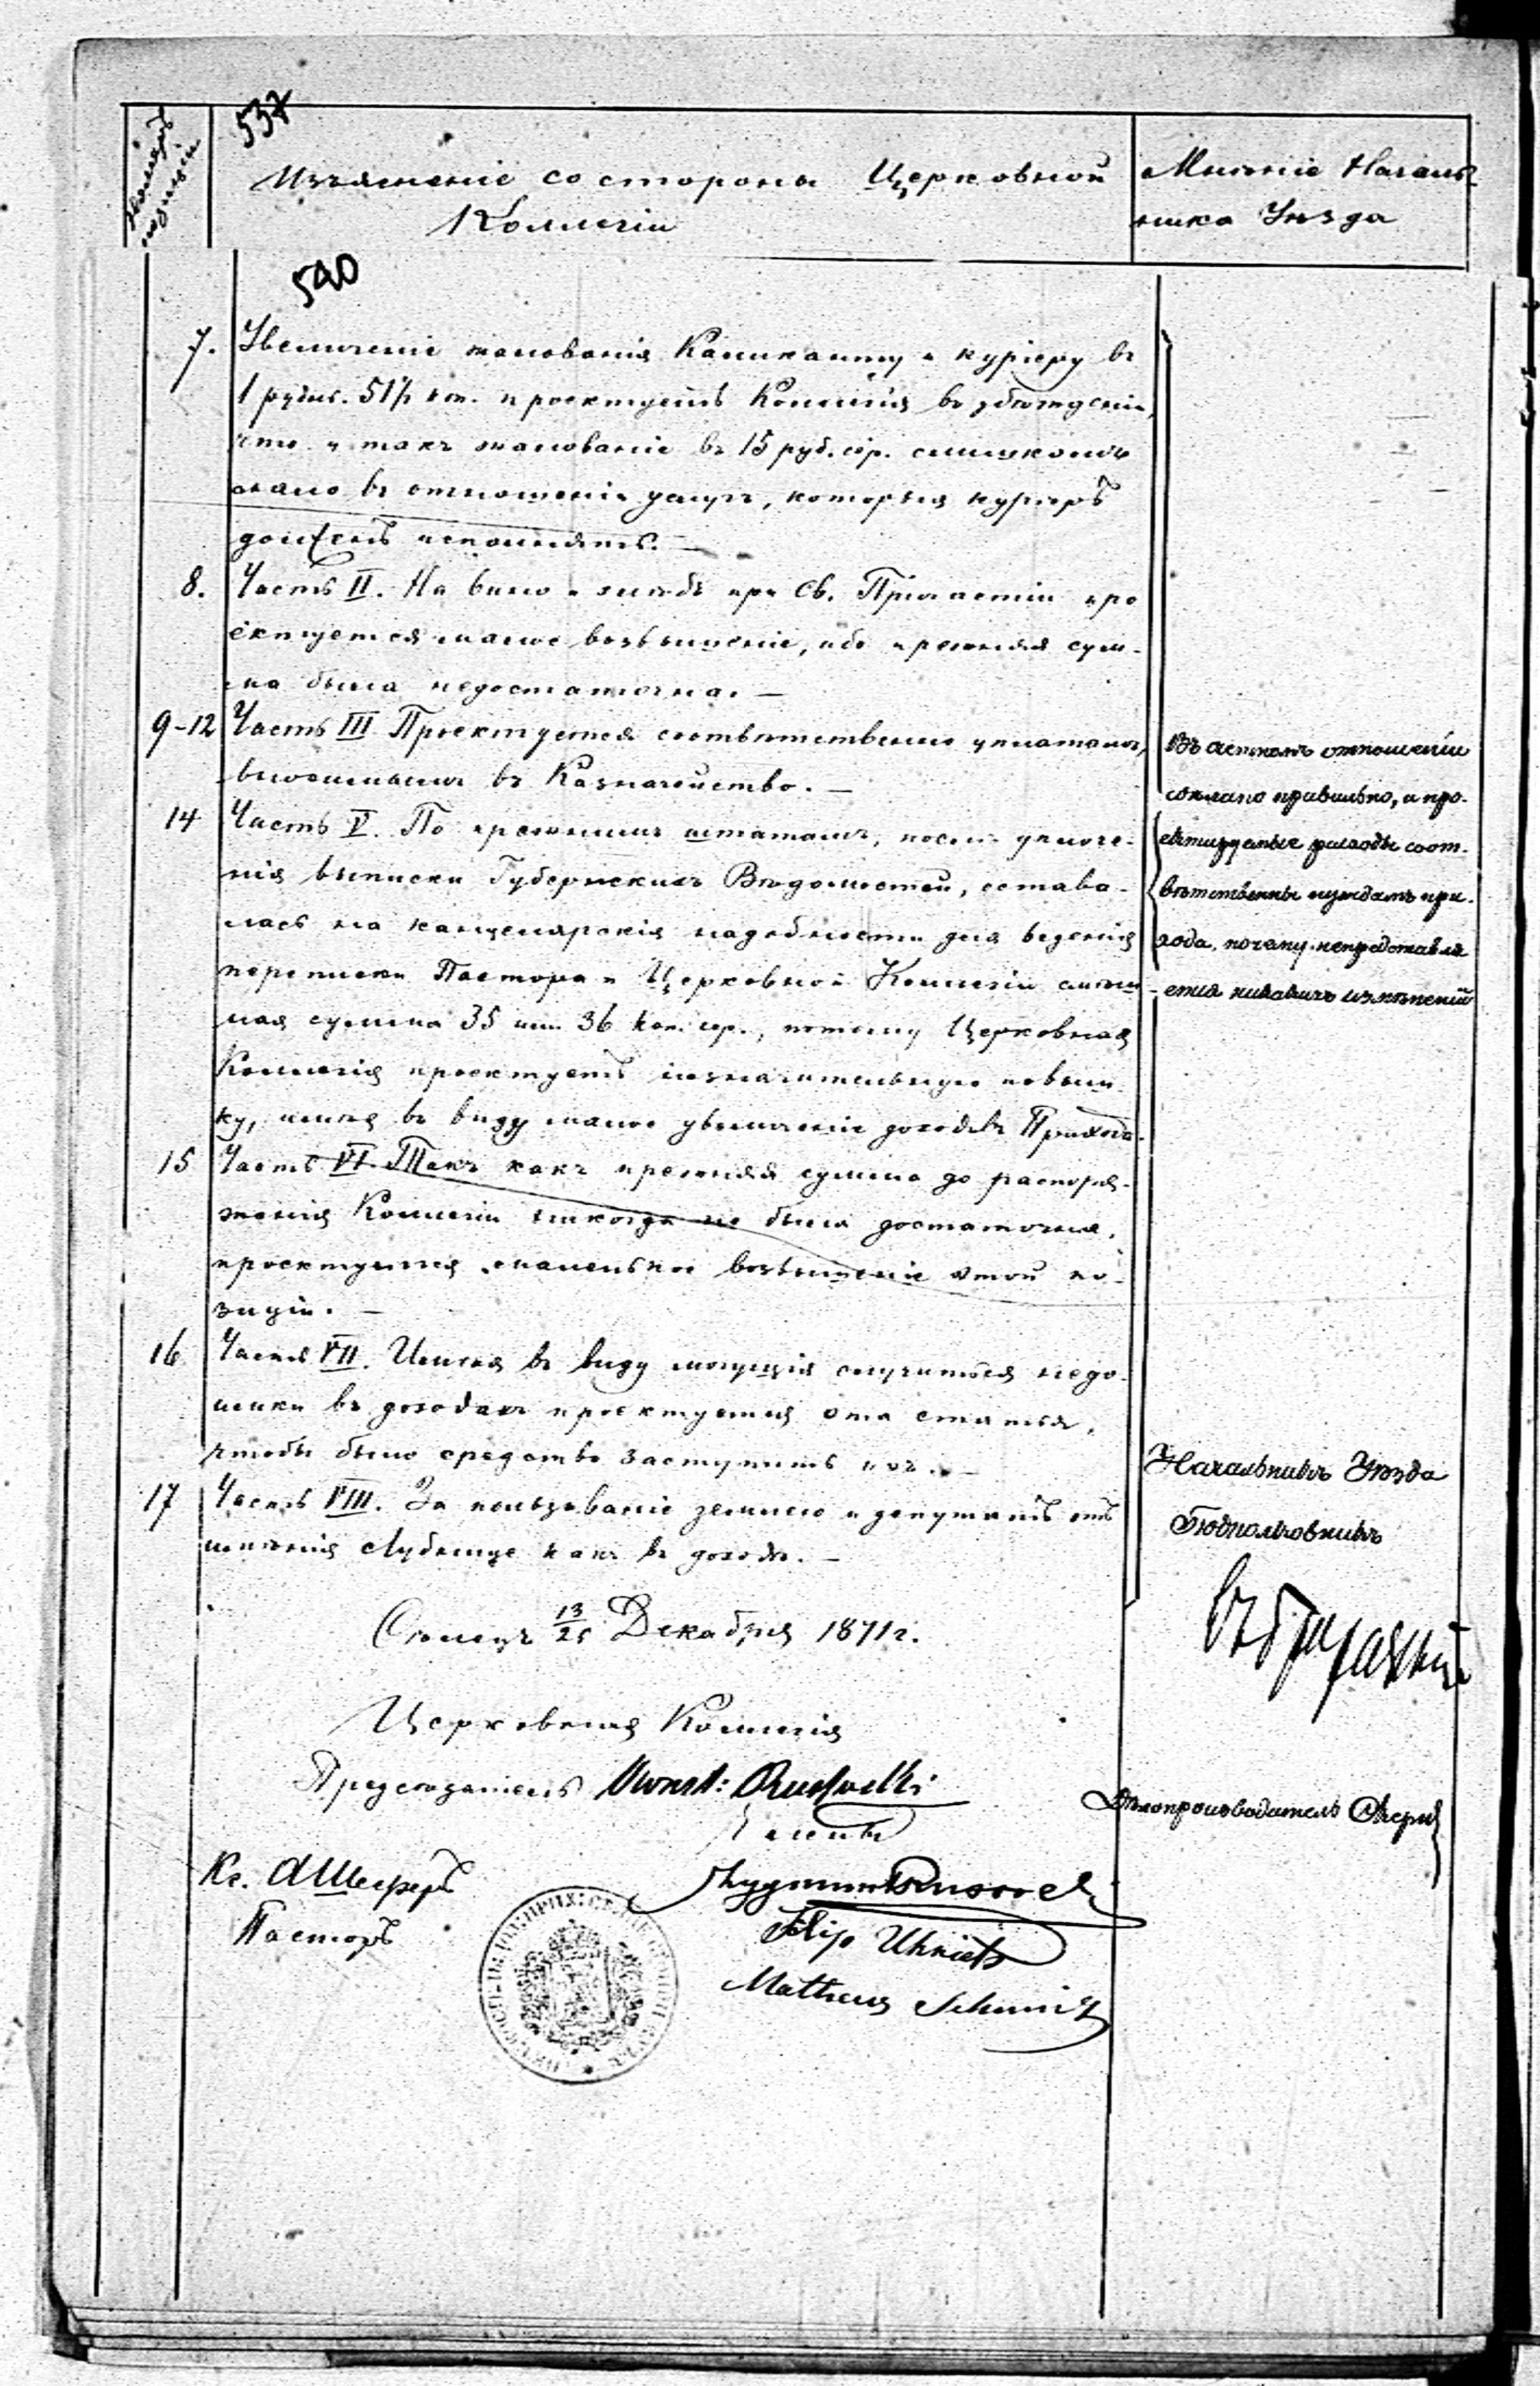 537
позиціи
Изъясненіе со стороны Церковной
Коллегіи
Мнѣніе Началь-
ника Уѣзда
540
7. Увеличеніе жалованія Каликанту и курьеру въ
1 рубль. 51½ коп. проектуетъ Коллегія въ убѣжденіи,
что и такъ жалованіе въ 15 руб. сер. слишкомъ
мало въ отношеніи услугъ, которыя курьеръ
долженъ исполнять. —
8. Часть II. На вино и хлѣбъ при Св. Причастіи про
ектуется малое возвышеніе, ибо прежняя сум-
ма была недостаточна. —
9-12 Часть III Проектуется соотвѣтственно уплатамъ,
вносимымъ въ Казначейство. —
14 Часть V. По прежнимъ штатамъ, послѣ уплоче-
нія выписки Губернскихъ Вѣдомостей, остава-
лась на канцелярскія надобности для веденія
переписки Пастора и Церковной Коллегіи
ная сумма 35 или 36 коп. сер., потому Церковная
Коллегія проектуетъ незначительную повыш-
ку, имѣя въ виду малое увеличеніе доходовъ Прихода.
15 Часть VI. Такъ какъ прежняя сумма до распоря-
женія Коллегіи никогда не была достаточна,
проектуется маленькое возвышеніе этой по-
зиціи. —
16 Часть VII. Имѣя въ виду могущія случиться недо-
имки въ доходахъ проектуется эта статья,
чтобы было средство заступить ихъ. —
17 Часть VIII. За пользованіе землею и депутатъ отъ
имѣнія какъ въ доходѣ. —
Въ отношеніи
правильно, и про-
ектируемые расходы соот-
вѣтственны нуждамъ при-
хода, почему непредставля
ется никакихъ измѣненій
Начальникъ Уѣзда
Подполковникъ
13/25 Декабря 1871 г.
Церковная Коллегія
Предсѣдатель
Члены
Дѣлопроизводитель
Кс. А Шефферъ
Пасторъ
Filip
Matheus Schmidt